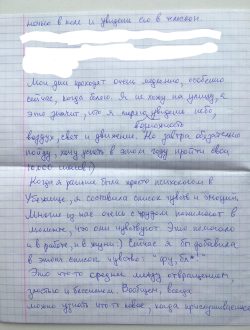 Мои дни проходят очень медленно, особенно
сейчас, когда болею. Я не хожу на улицу, а
это значит, что я теряю увидеть небо,
возможность
воздух, свет и движение. Но завтра обязательно
пойду, хочу успеть в этом году пройти свои
10.000 шагов!)
Когда я раньше была просто психологом в
Убежище, я составила список чувств и эмоций.
Многие из нас очень с трудом понимают в
моменте, что они чувствуют. Это помогало
и в работе, и в жизни:) Сейчас я бы добавила
в этот список чувство "фу, бл*"
Это что-то среднее между отвращением,
злостью и бессилием. Вообщем, всегда
можно узнать что-то новое, когда прислушиваешься